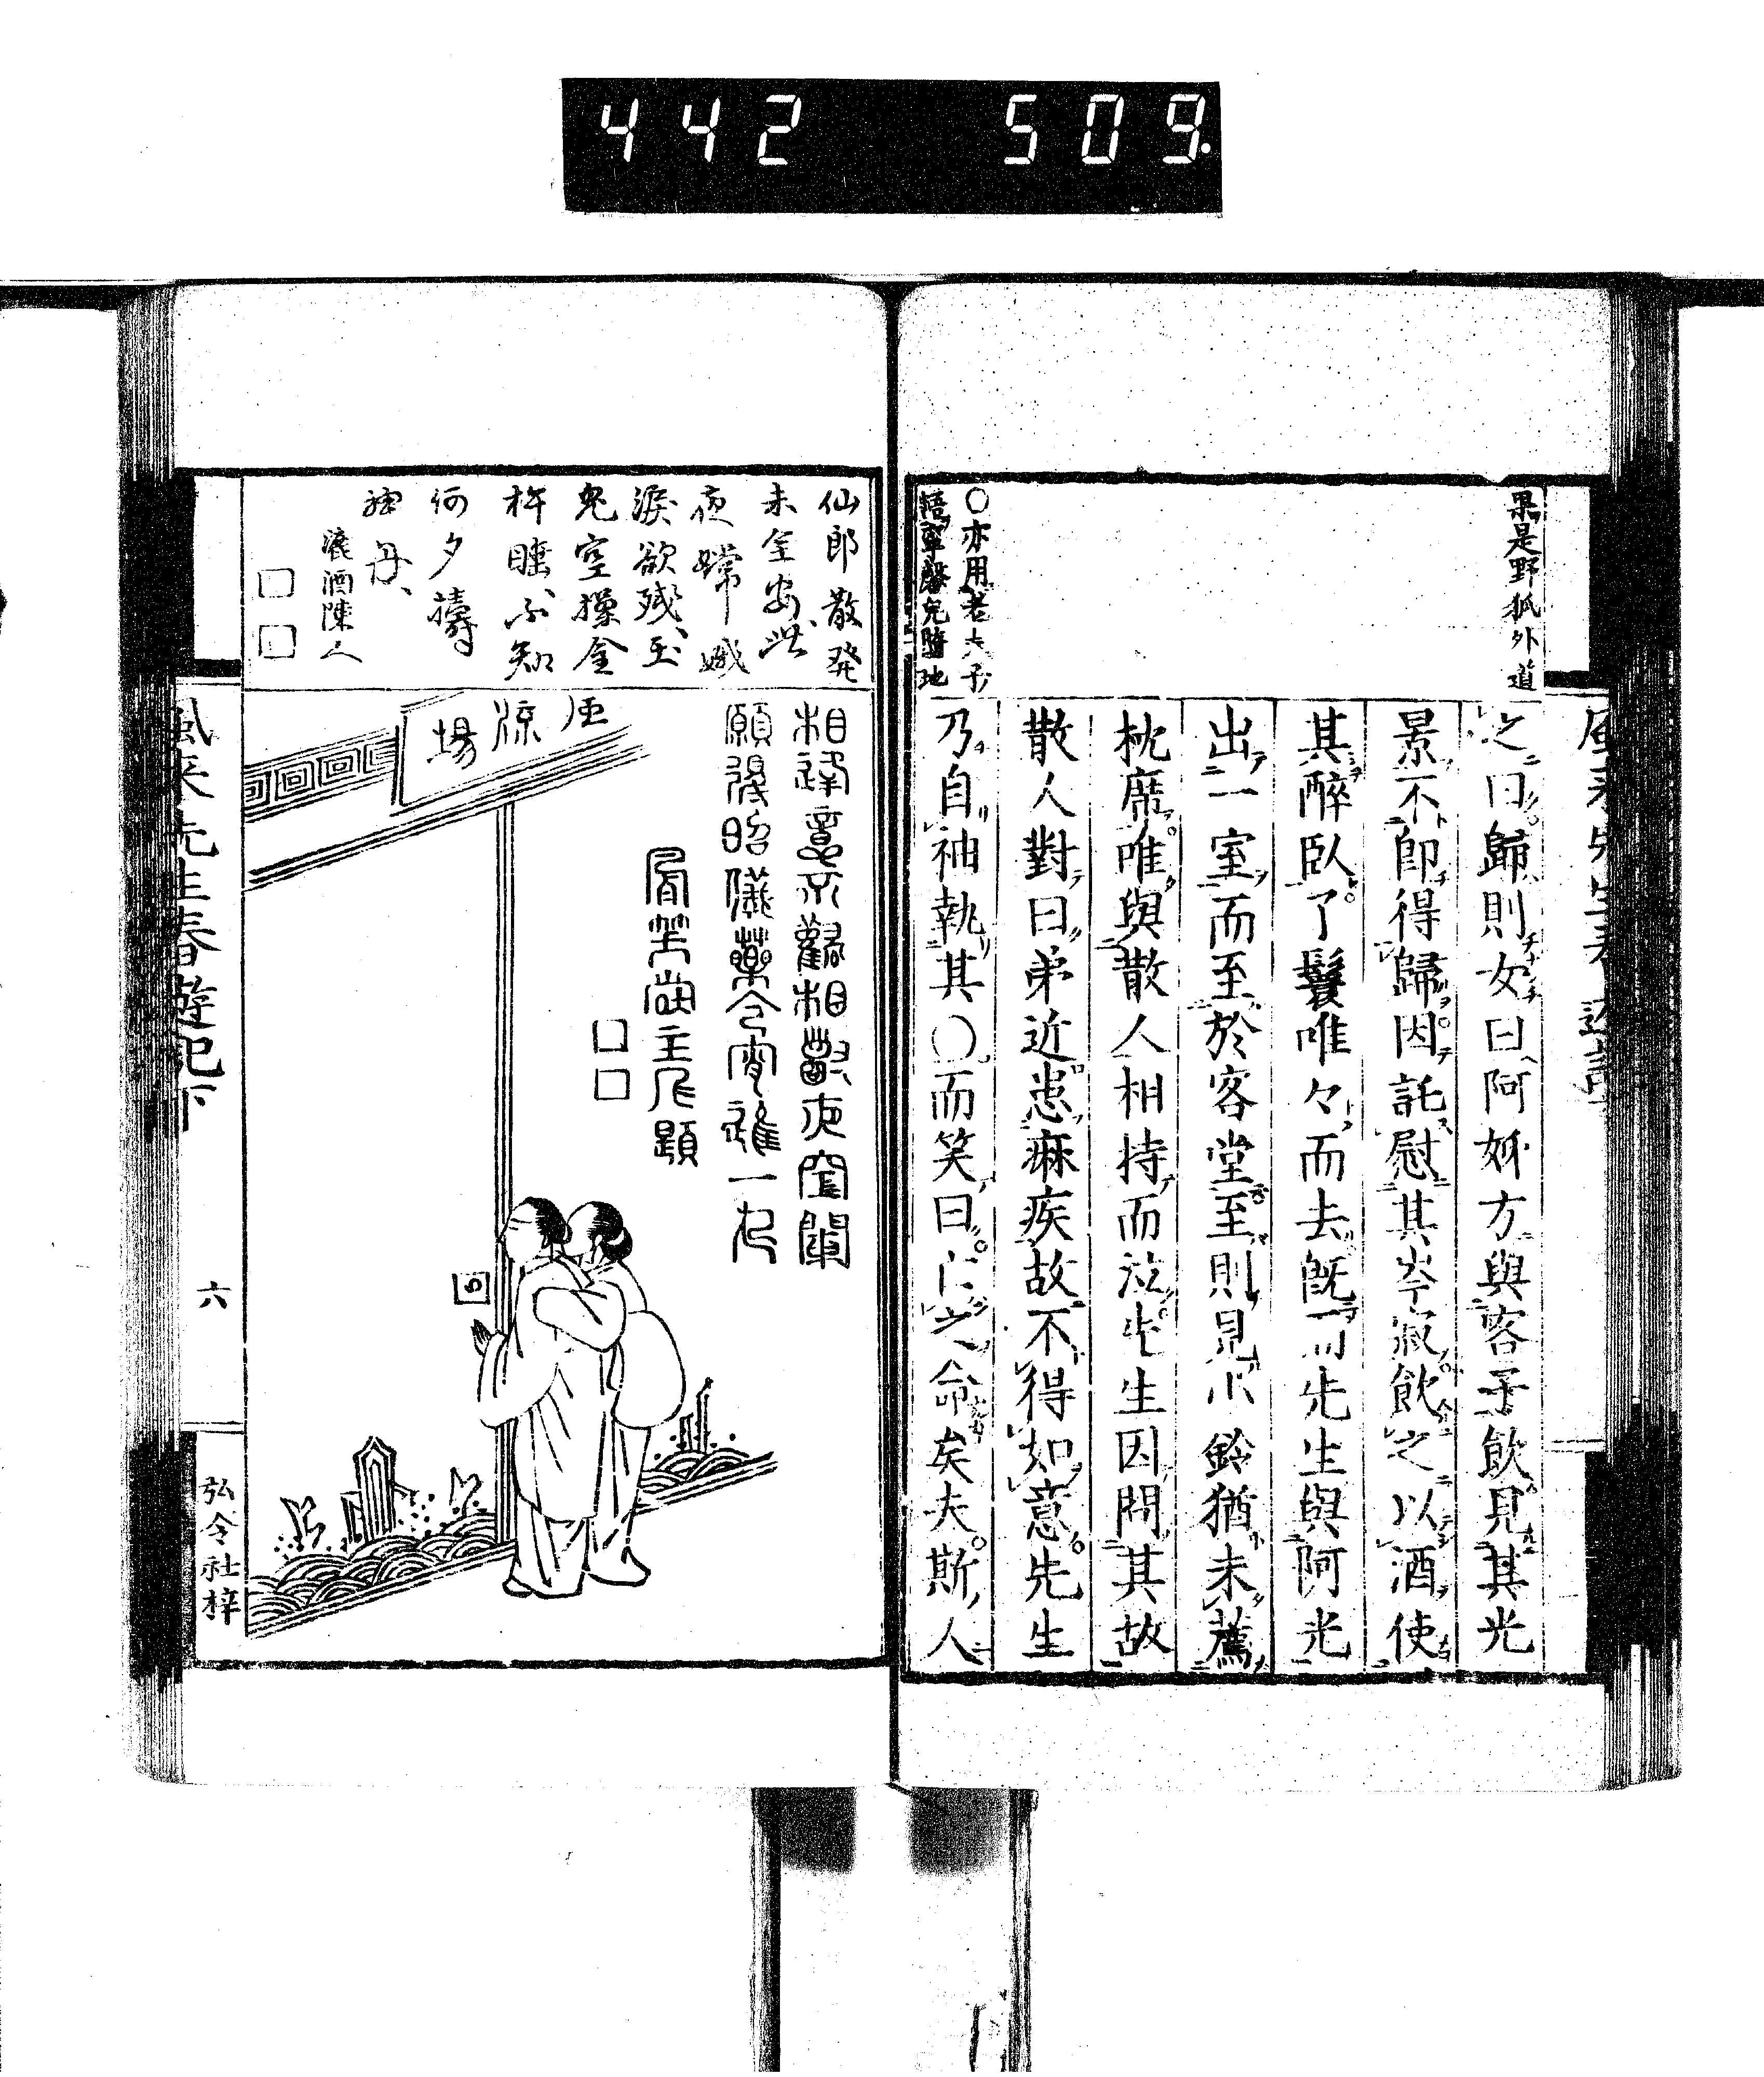 442 509.
果是野狐外道
之曰歸則女曰阿姊方與客子飲見其光
景不卽得歸因託慰其岑寂飲之以酒使
其醉臥了鬟唯々而去旣而先生與阿光
出一室而至於客堂至則見小鈴猶未薦
枕席唯與散人相持而泣先生因問其故
散人對曰弟近患痳疾故不得如意先生
乃自袖執其〇而笑曰亡之命矣夫斯人
〇亦用老夫子
語
兒墮地
仙郎散発
未全安此
夜嫦娥
淚欲残玉
兔空操金
杵睡不知
何夕擣
丹
漉酒陳人
相逢意不
相
願得昭儀藥今宵進一丸
主人題
風流場
風来先生春遊記下
六
弘令社梓